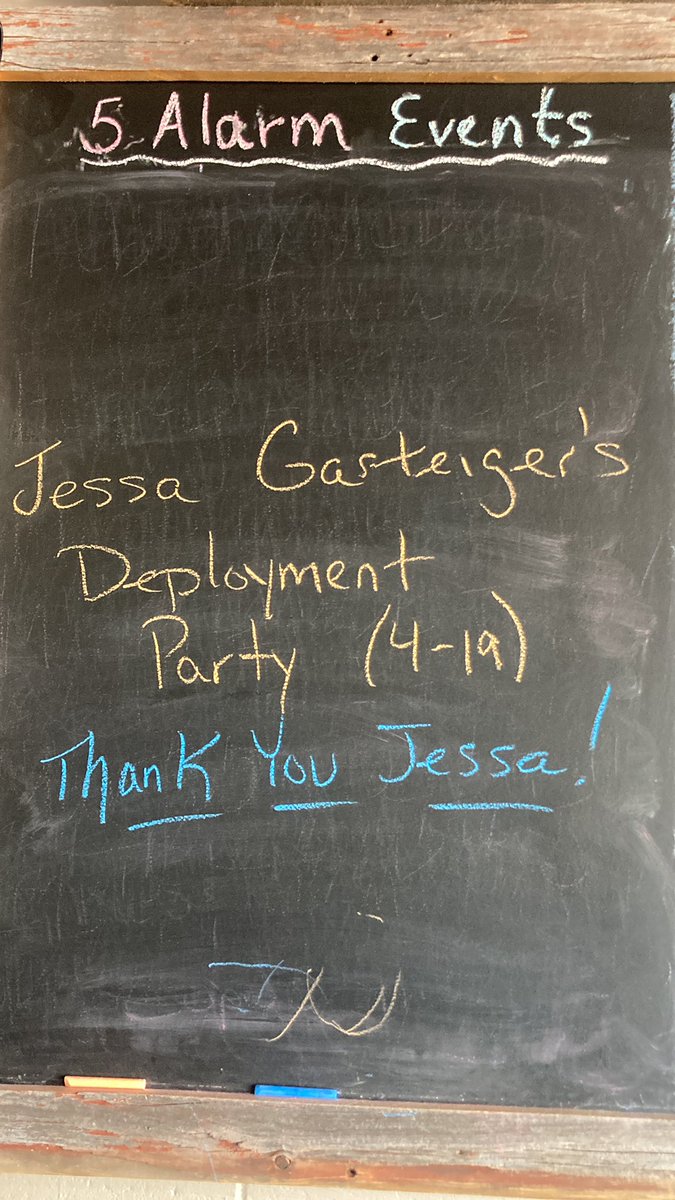 5 Alarm Events
Jessa Gasteiger's
Deployment
Party (4-19)
Thank You Jessa!